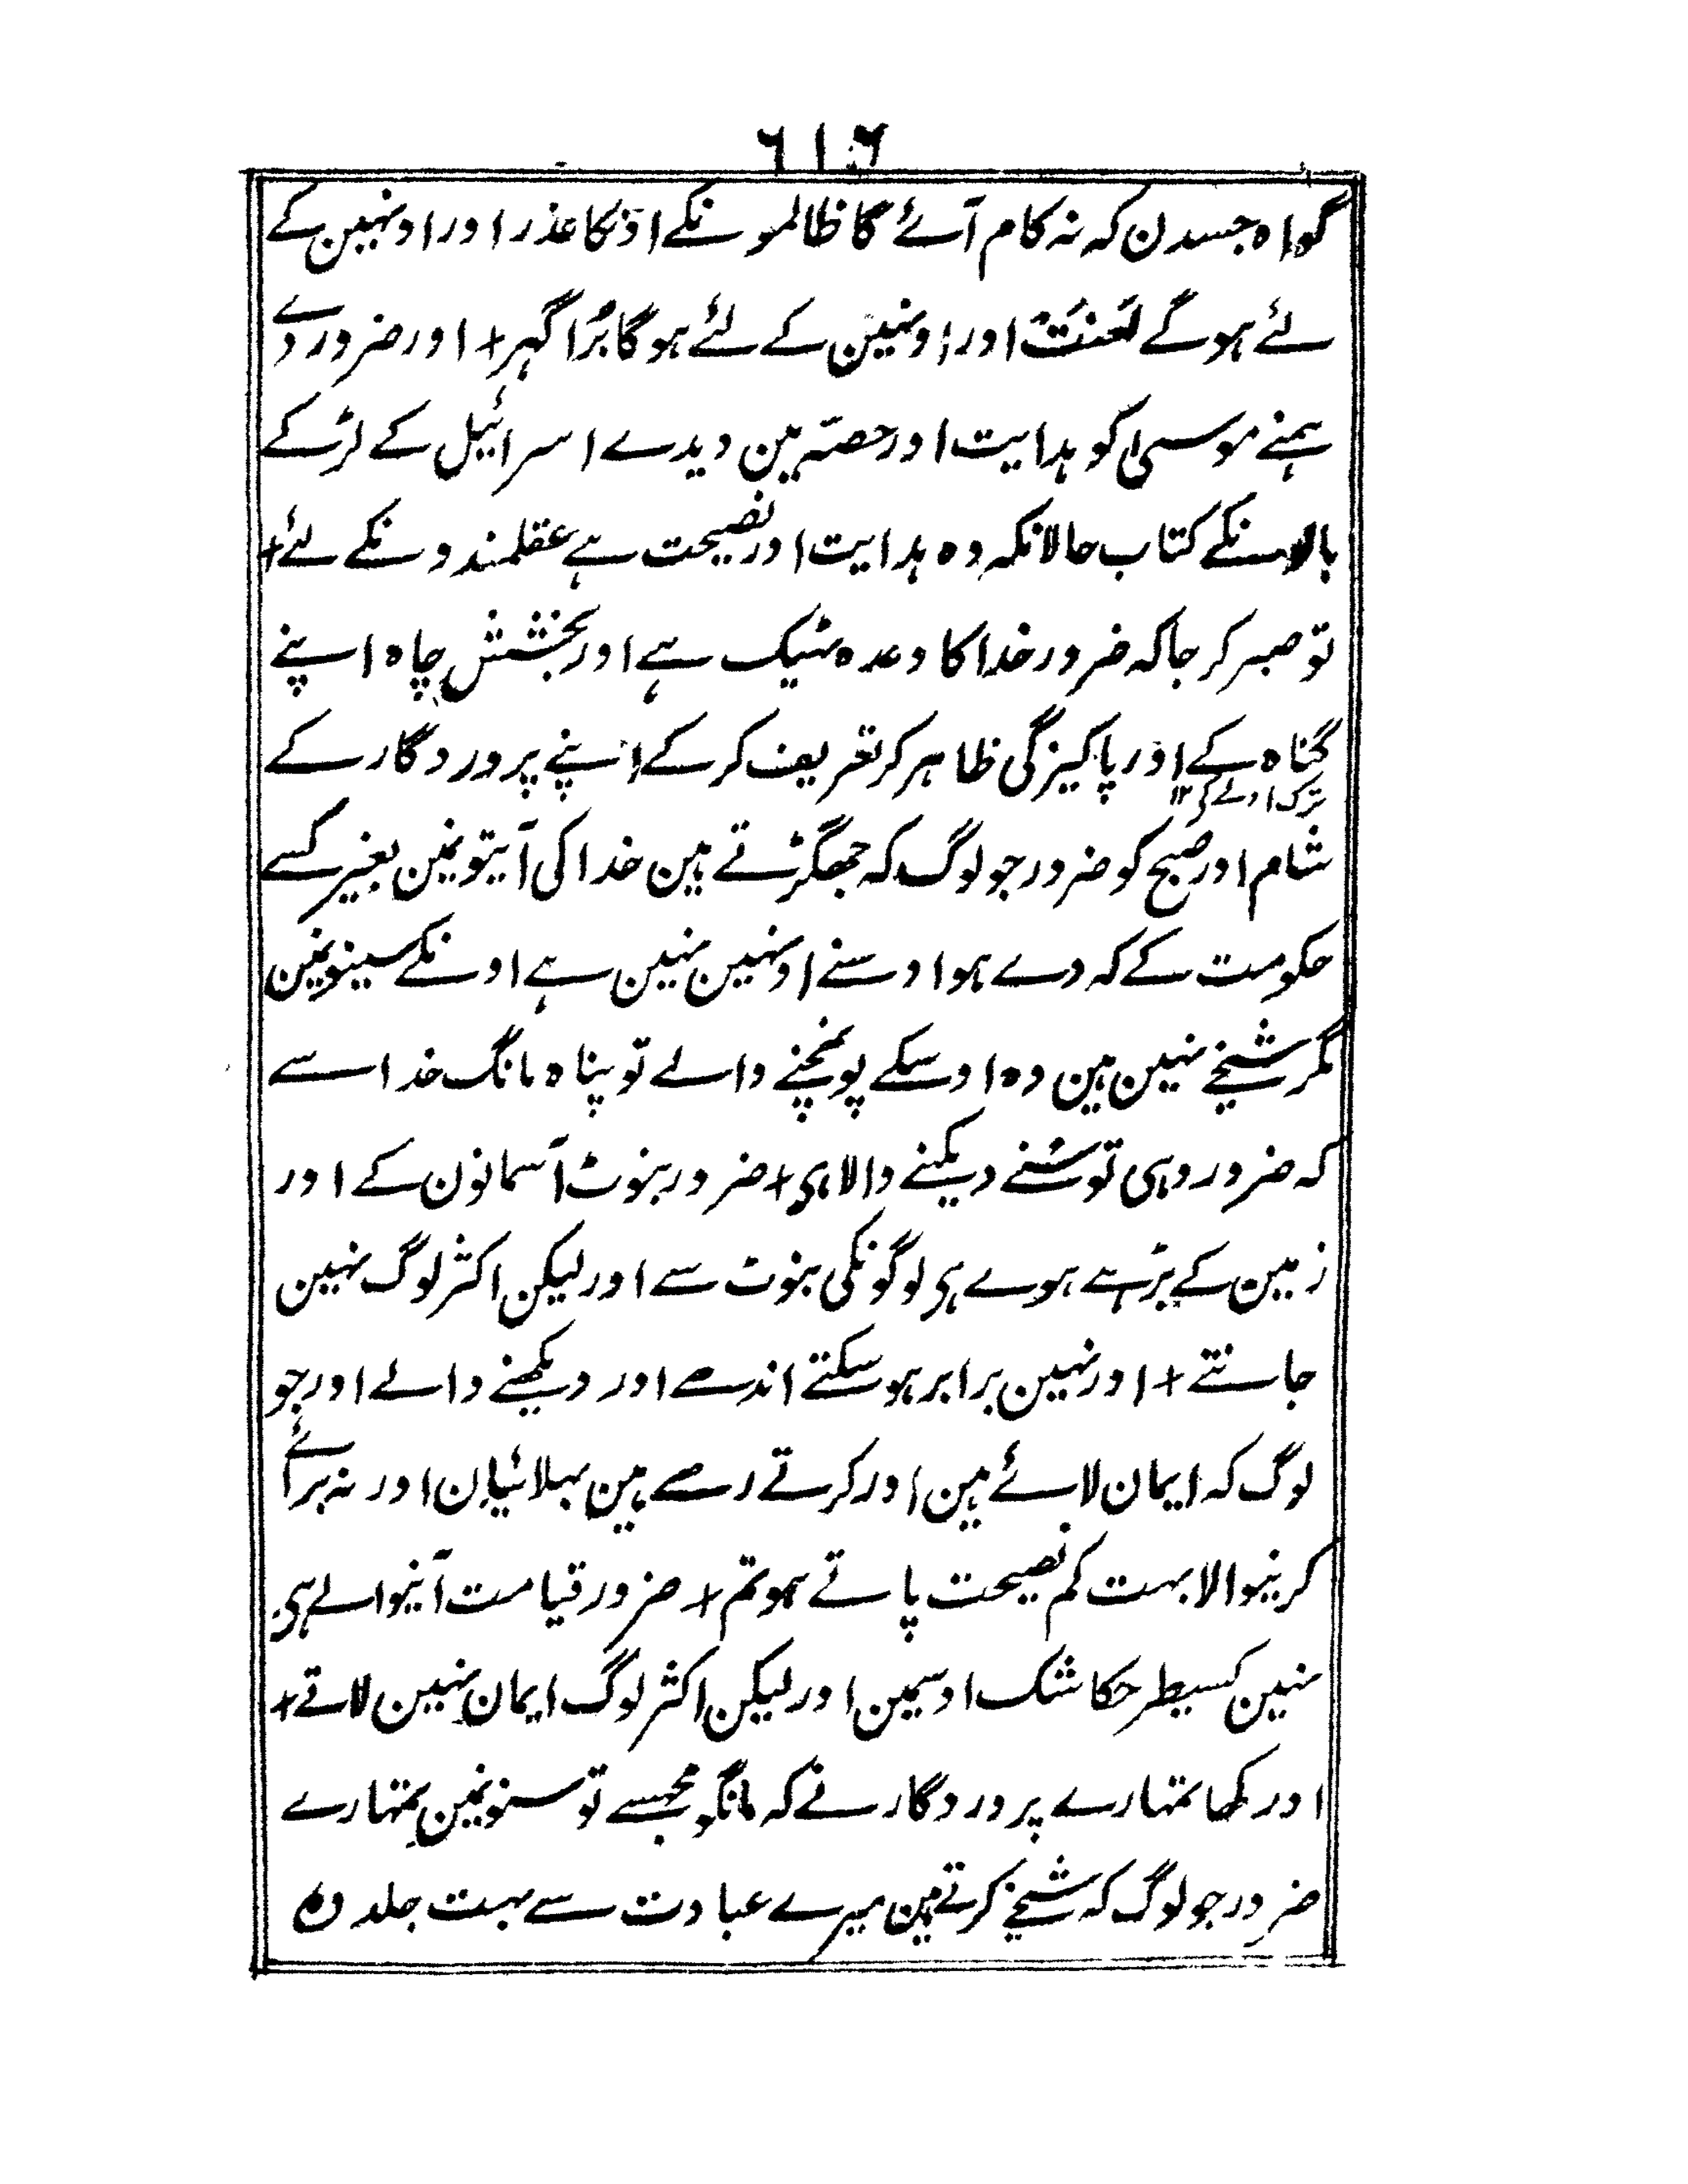 ٦١٦
گواہ جسدن کہ نہ کام آئے گا ظالمونکے اونکا عذر اور اونہین کے
لئے ہوگے لعنت اور اونہین کے لئے ہوگا بُرا گہر + اور ضرور دے
ہمنے موسیٰ کو ہدایت اور حصّہ مین دیدے اسرائیل کے لڑکے
بالونکے کتاب حالانکہ وہ ہدایت اور نصیحت ہے عقلمندونکے لئے +
تو صبر کر جا کہ ضرور خدا کا وعدہ ٹہیک ہے اور بخشش چاہ اپنے
گناہ کے اور پاکیزگی ظاہر کر تعریف کر کے اپنے پروردگار کے
ترک اولے کی ١٢
شام اور صبح کو ضرور جو لوگ کہ جھگڑتے ہین خدا کی آیتونمین بغیر کسے
حکومت کے کہ دے ہو اوسنے اونہین نہین ہے اونکے سینونمین
مگر شیخے نہین ہین وہ اوسکے پونہچنے والے تو پناہ مانگ خدا سے
کہ ضرور وہی تو سُننے دیکہنے والا ہی + ضرور بنوٹ آسمانون کے اور
زمین کے بڑہے ہوے ہی لوگونکی بنوٹ سے اور لیکن اکثر لوگ نہین
جانتے + اور نہین برابر ہو سکتے اندھے اور دیکھنے والے اور جو
لوگ کہ ایمان لائے ہین اور کرتے رہے ہین بہلائیان اور نہ برائے
کرنیوالا بہت کم نصیحت پاتے ہو تم + ضرور قیامت آنیوالے ہی
نہین کسیطرحکا شک اوسمین اور لیکن اکثر لوگ ایمان نہین لاتے +
اور کہا تمہارے پروردگار نے کہ مانگو مجہسے تو سنونمین تمہارے
ضرور جو لوگ کہ شیخے کرتے ہین میرے عبادت سے بہت جلد وہ